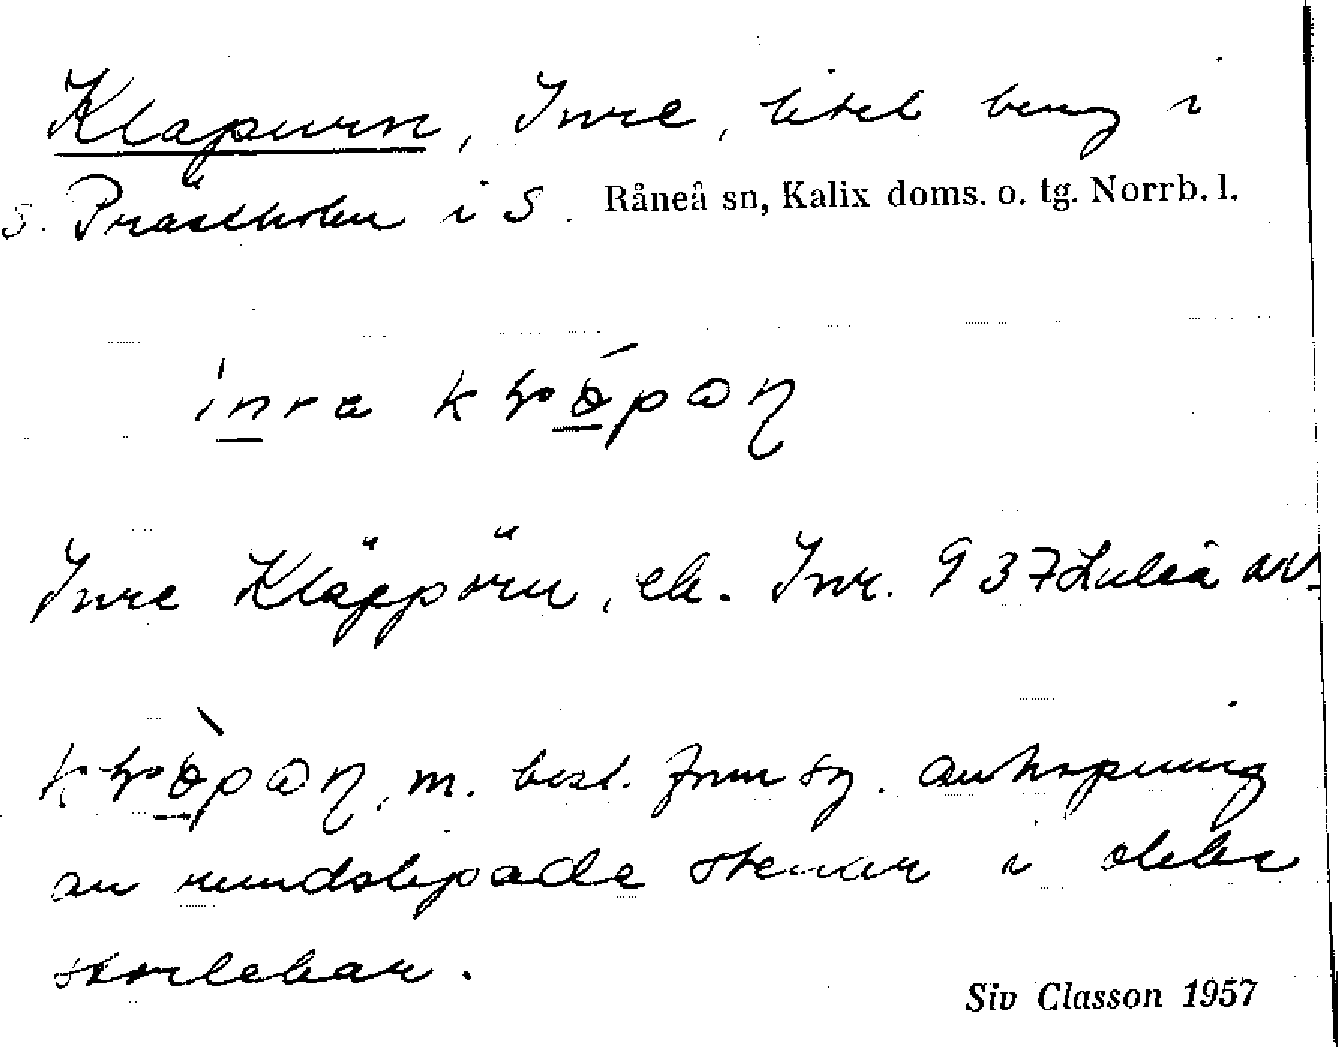 Klapurn, Inre, litet berg i
S. Prästholm i S. Råneå sn, Kalix doms. o. tg. Norrb. l.
inra
Inre Kläppörn, ek. Inr. 937 Luleå
m. best. form sg. anhopning
av rundslipade stenar i olika
storlekar.
Siv Classon 1957